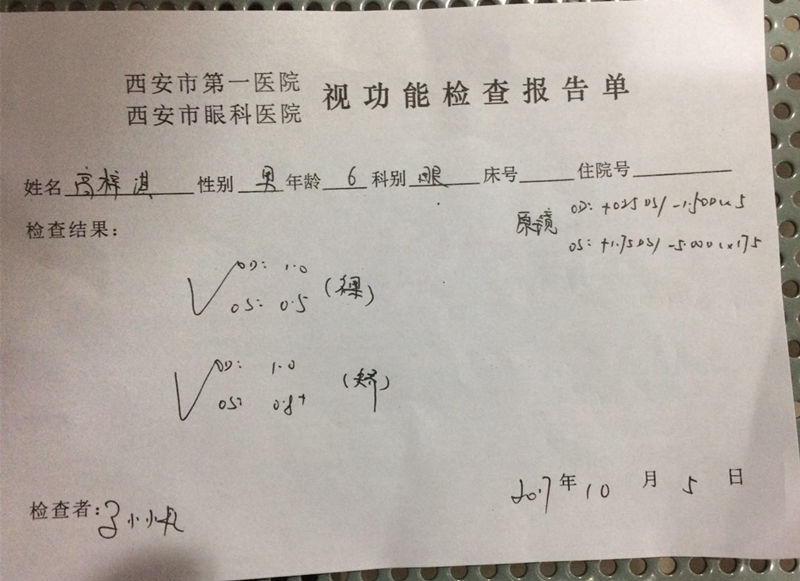 西安市第一医院
西安市眼科医院
视功能检查报告单
姓名 高梓淇 性别 男 年龄 6 科别 眼 床号 住院号
检查结果：
原镜 OD: +0.25DS/-1.50DC×5
OS: +1.75DS/-5.00DC×175
V OD: 1.0
OS: 0.5 (裸)
V OD: 1.0
OS: 0.8+ (矫)
2017年10月5日
检查者: